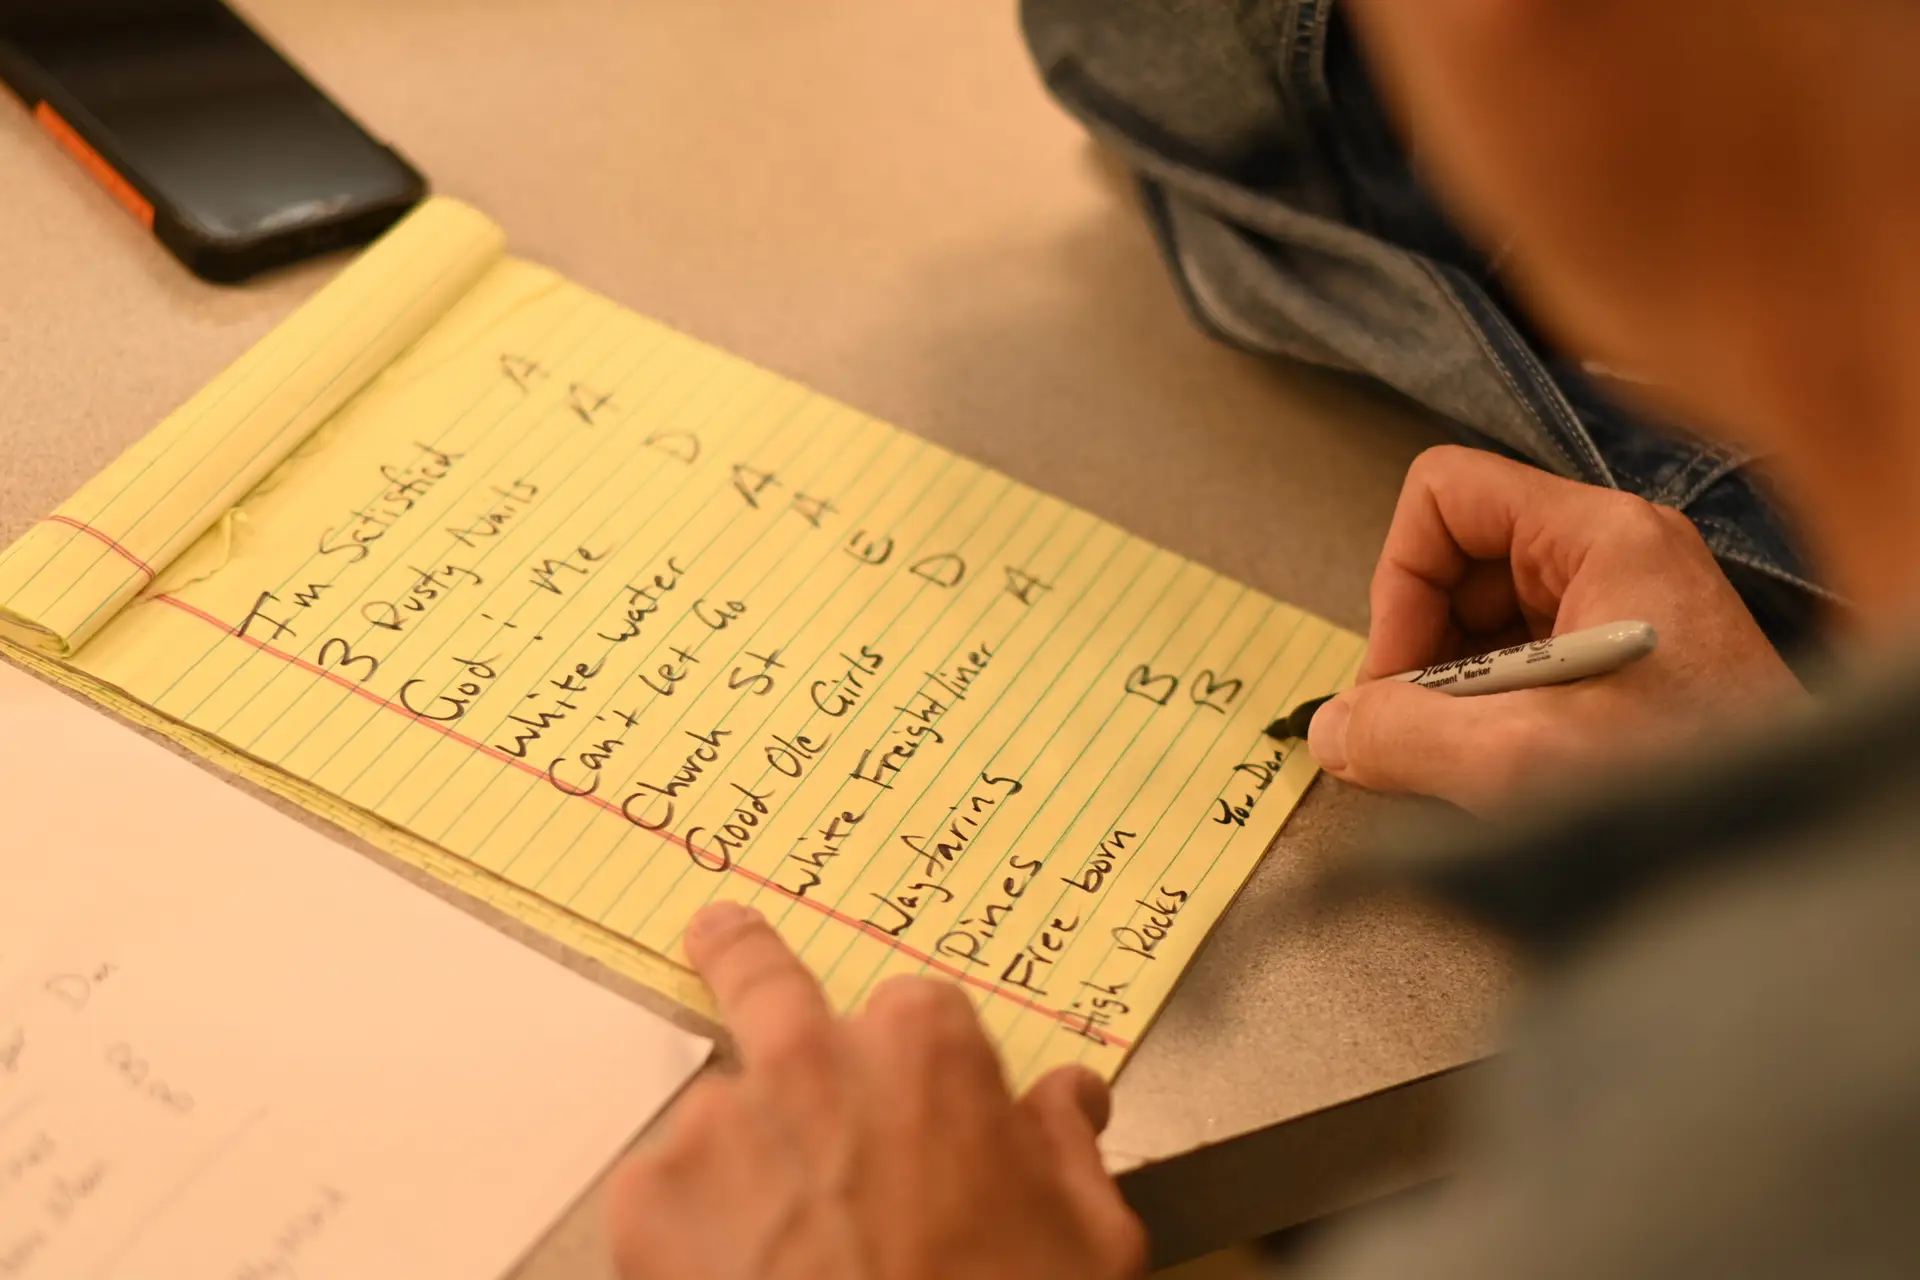 I'm Satisfied A
3 Rusty Nails A
God : Me D
White water A
Can't Let Go A
Church St E
Good Ole Girls D
White Freightliner A
Wayfaring
Pines B
Free born B
High Rocks You Don
Sharpie
Permanent Marker